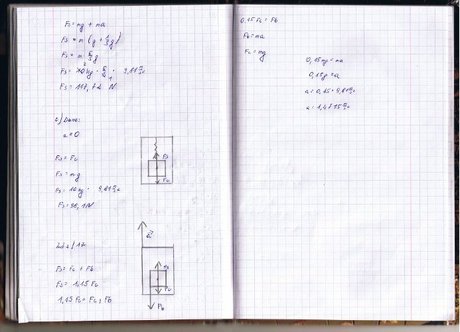 Fs = mg + ma
Fs = m (g + 1/5 g)
Fs = m 6/5 g
Fs = 10 kg · 6/5 ·
Fs = 117,72 N
b) Dane:
a = 0
Fs = Fc
Fs = mg
Fs = 10 kg ·
Fs = 98,1 N
Fs
Fc
a
Fs = Fc + Fb
Fs = 1,15 Fc
1,15 Fc = Fc + Fb
Fs
Fc
Fb
0,15 Fc = Fb
Fb = ma
Fc = mg
0,15 mg = ma
0,15 g = a
a = 0,15 · 9,81 m/s²
a = 1,4715 m/s²